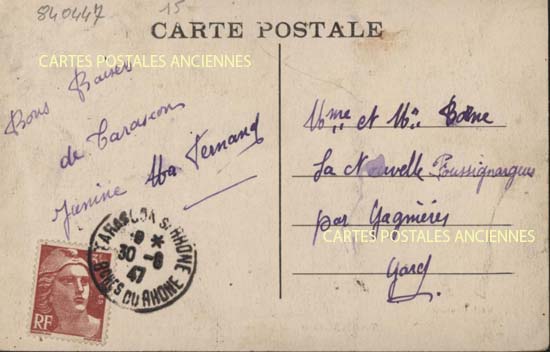 840447
15
CARTE POSTALE
CARTES POSTALES ANCIENNES
Bons Baisers
de Tarascon
Janine Fernand
Mme et Mr
La Nouvelle Poussignargues
par Gagnières
CARTES POSTALES ANCIENNES
Gard
TARASCON S/ RHONE
30-8
47
BCHES DU RHONE
RF